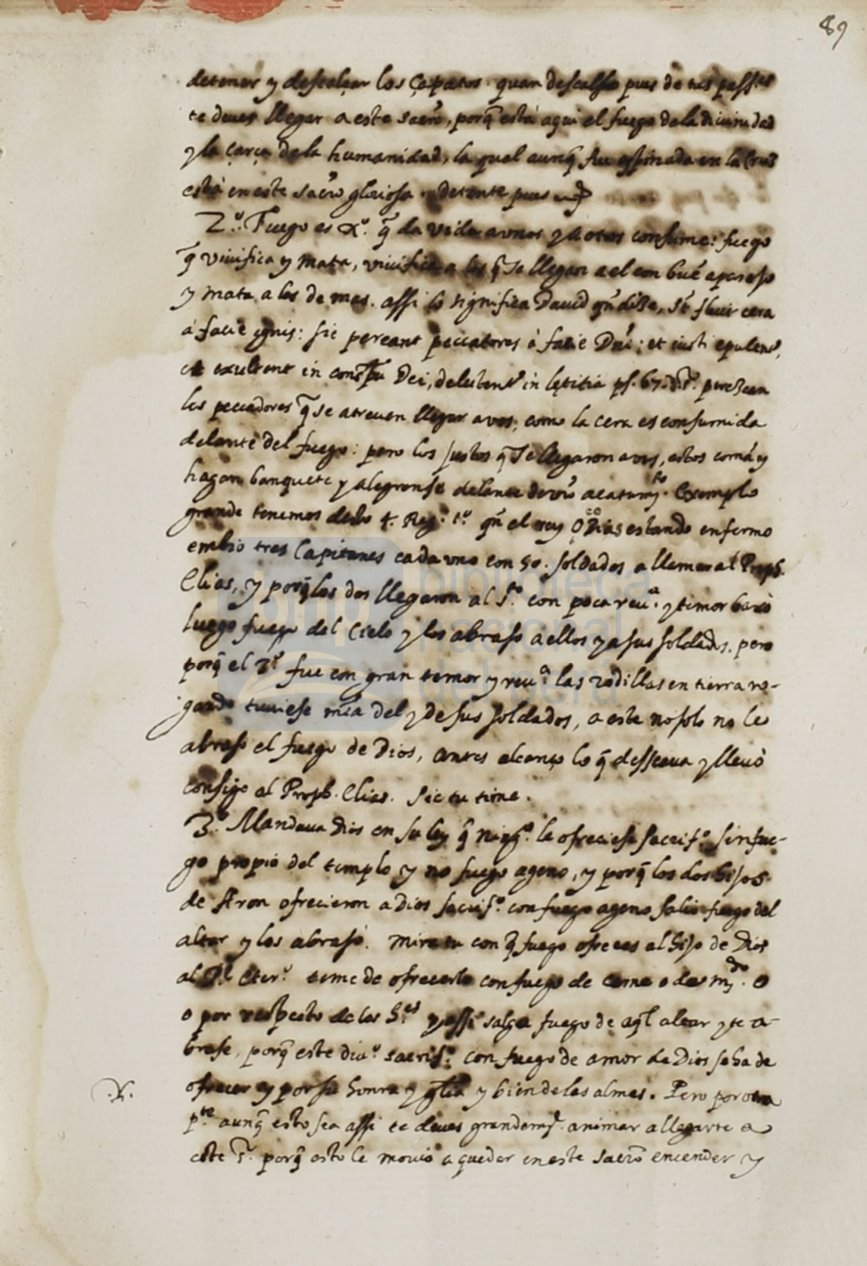 89
detener y descalçar los çapatos. quan descalso pues de tus pass.es
te deues llegar a este sacro, porq̃ està aqui el fuego de la divinidad
y la çarça de la humanidad, la qual aunq̃ fue espinada en la Cruz
està en este sacro gloriosa. detente pues
2.º Fuego es X.º q̃ da vida a vnos y a otros consume: fuego
q̃ viuifica y mata, viuifica a los q̃ se llegan a el con buẽ aparejo
y mata a los demas. assi lo significa Dauid qñ dise, st̃ fluit cera
a facie ignis: sic pereant peccatores a facie Dei; et iusti epulent.r
et exultent in consp̃u Dei, delectent.r in lętitia ps. 67. perezcan
los peccadores q̃ se atreuen llegar a vos, como la cera es consumida
delante del fuego: pero los justos q̃ se llegaron a vos, estos comã y
hagan banquete y alegrense delante de vrõ acatam.to Exemplo
grande tenemos desto 4. Reg. 1.º qñ el rey Ocozias estando enfermo
embio tres Capitanes cada vno con 50. soldados a llamar al Proph.
Elias, y porq̃ los dos llegaron al S.to con poca reu.a y temor baxò
luego fuego del Cielo y los abrasò a ellos y a sus soldados. pero
porq̃ el 3.º fue con gran temor y reu.a las rodillas en tierra ro-
gando tuuiese mĩa del y de sus soldados, a este no solo no le
abrasò el fuego de Dios, antes alcanço lo q̃ desseaua y lleuò
consigo al Proph. Elias. Sic tu time.
3.º Mandaua Dios en su ley q̃ ning.º le ofreciese sacrif.º sin fue-
go propio del templo y no fuego ageno, y porq̃ los dos hijos
de Aron ofrecieron a Dios sacrif.º con fuego ageno salio fuego del
altar y los abrasò. Mira tu con q̃ fuego ofreces al hijo de Dios
al P.e Eter.º teme de ofrecerle con fuego de carne o del m.do o
o por respecto de los h.es y assi salga fuego de aq̃l altar y te a-
brase, porq̃ este diu.º sacrif.º con fuego de amor de Dios se ha de
ofrecer y por su honra y glia y bien de las almas. Pero por otra
p.te aunq̃ esto sea assi te deues grandem.te animar a llegarte a
este S.r porq̃ esto le mouiò a quedar en este sacro encender y
.X.